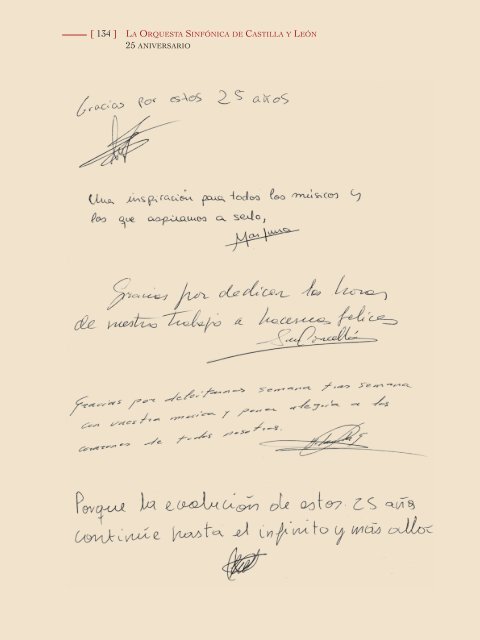 [ 134 ] La Orquesta Sinfónica de Castilla y León
25 aniversario
Gracias por estos 25 años
Una inspiración para todos los músicos y
los que aspiramos a serlo,
Gracias por dedicar las horas
de vuestro trabajo a hacernos felices
Gracias por deleitarnos semana tras semana
con vuestra musica y poner alegría a los
corazones de todos nosotros.
Porque la evolución de estos 25 años
continúe hasta el infinito y más allá